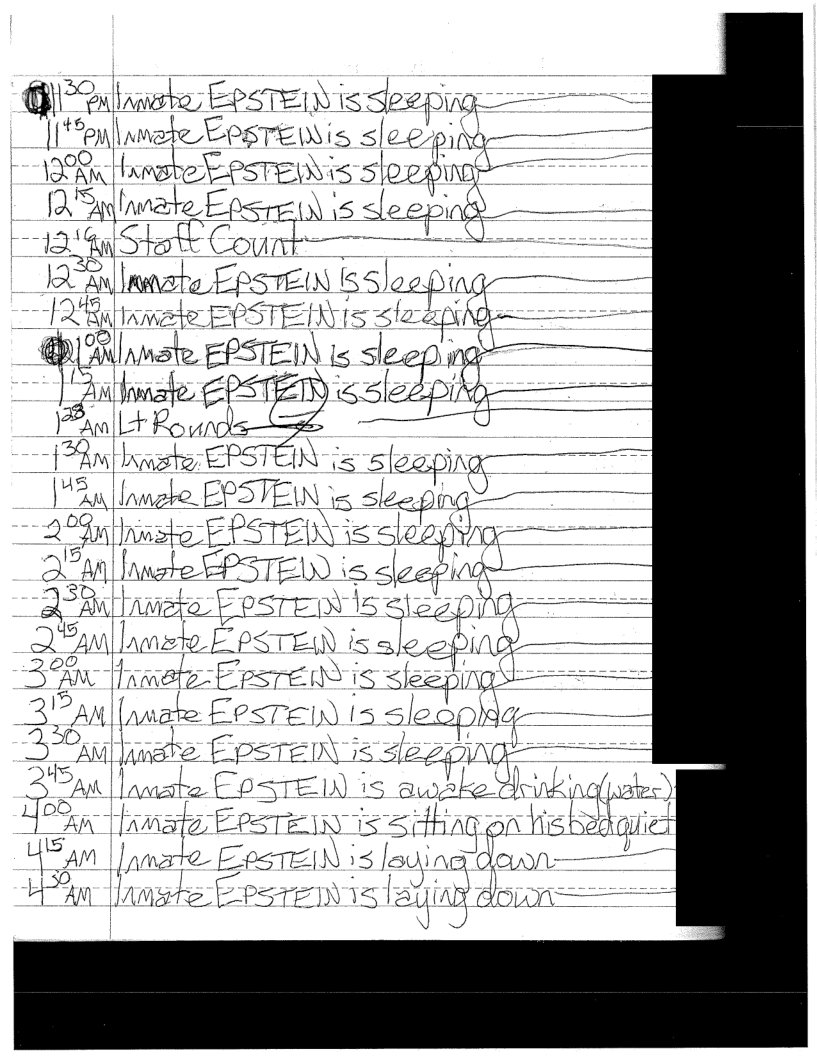 11 30 PM Inmate EPSTEIN is sleeping
11 45 PM Inmate EPSTEIN is sleeping
12 00 AM Inmate EPSTEIN is sleeping
12 15 AM Inmate EPSTEIN is sleeping
12 16 AM Staff Count
12 30 AM Inmate EPSTEIN is sleeping
12 45 AM Inmate EPSTEIN is sleeping
1 00 AM Inmate EPSTEIN is sleeping
1 15 AM Inmate EPSTEIN is sleeping
1 28 AM Lt Rounds
1 30 AM Inmate EPSTEIN is sleeping
1 45 AM Inmate EPSTEIN is sleeping
2 00 AM Inmate EPSTEIN is sleeping
2 15 AM Inmate EPSTEIN is sleeping
2 30 AM Inmate EPSTEIN is sleeping
2 45 AM Inmate EPSTEIN is sleeping
3 00 AM Inmate EPSTEIN is sleeping
3 15 AM Inmate EPSTEIN is sleeping
3 30 AM Inmate EPSTEIN is sleeping
3 45 AM Inmate EPSTEIN is awake drinking (water)
4 00 AM Inmate EPSTEIN is sitting on his bed quiet
4 15 AM Inmate EPSTEIN is laying down
4 30 AM Inmate EPSTEIN is laying down